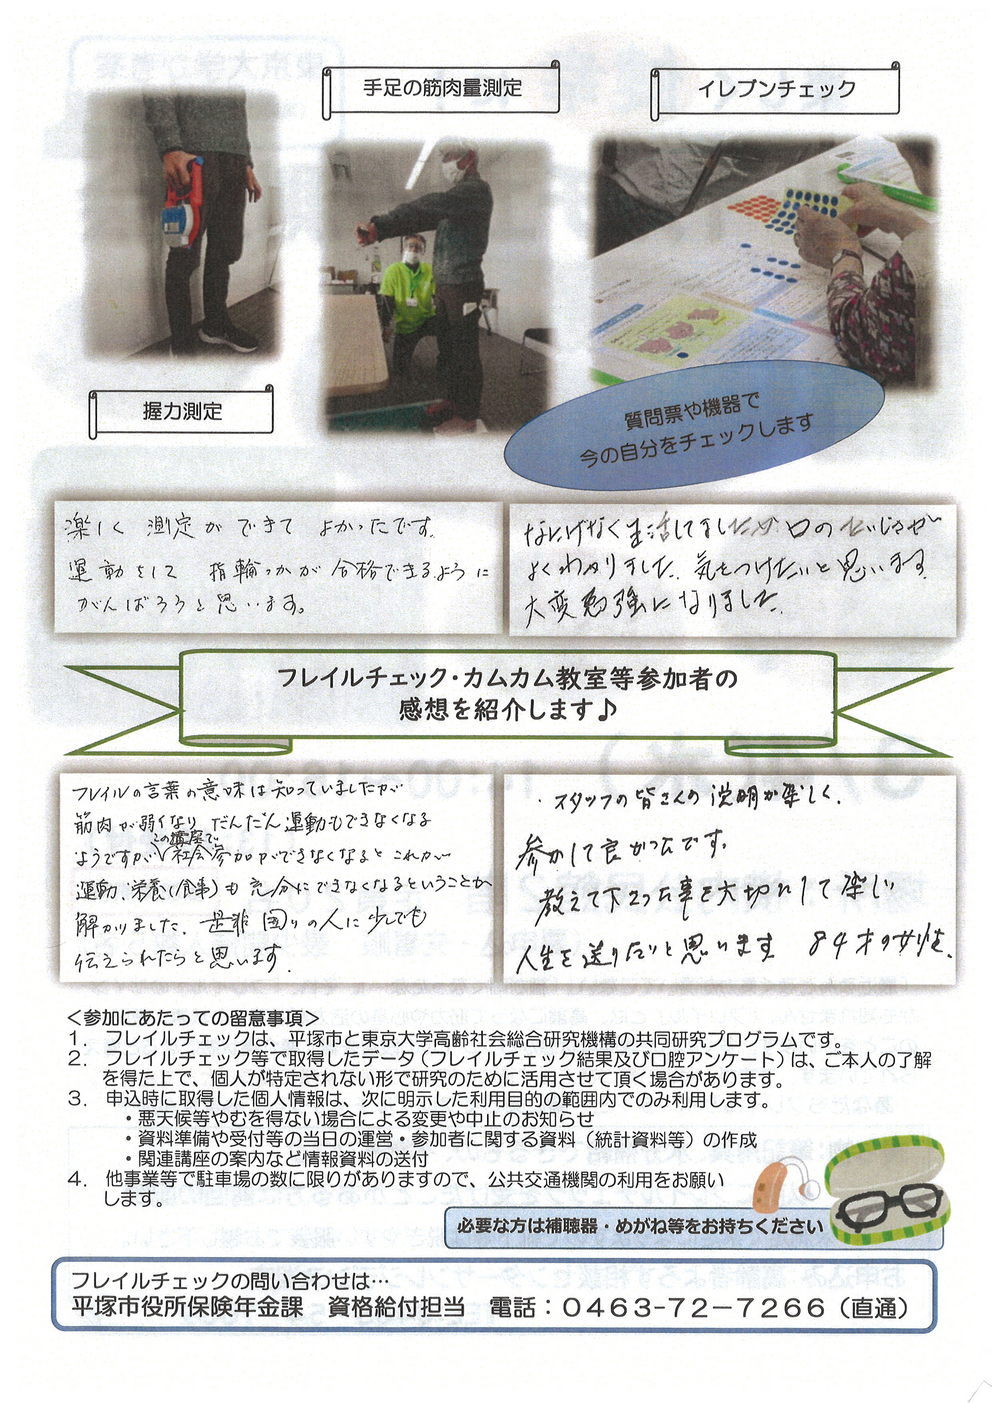 手足の筋肉量測定
イレブンチェック
握力測定
質問票や機器で
今の自分をチェックします
楽しく 測定ができて よかったです。
運動をして 指輪っかが 合格できるように
がんばろうと思います。
なにげなく生活してましたが口の
よくわかりました。気をつけたいと思います。
大変勉強になりました。
フレイルチェック・カムカム教室等参加者の
感想を紹介します♪
フレイルの言葉の意味は知っていましたが
筋肉が弱くなり だんだん運動もできなくなる
この講座で
ようですが 社会参加ができなくなると これが
運動、栄養(食事)も 充分にできなくなるということが
解かりました。是非 困りの人に少しでも
伝えられたらと思います。
・スタッフの皆さんの説明が楽しく、
参加して良かったです。
教えて下さった事を大切にして楽しい
人生を送りたいと思います 84才の女性。
＜参加にあたっての留意事項＞
1. フレイルチェックは、平塚市と東京大学高齢社会総合研究機構の共同研究プログラムです。
2. フレイルチェック等で取得したデータ（フレイルチェック結果及び口腔アンケート）は、ご本人の了解
を得た上で、個人が特定されない形で研究のために活用させて頂く場合があります。
3. 申込時に取得した個人情報は、次に明示した利用目的の範囲内でのみ利用します。
・悪天候等やむを得ない場合による変更や中止のお知らせ
・資料準備や受付等の当日の運営・参加者に関する資料（統計資料等）の作成
・関連講座の案内など情報資料の送付
4. 他事業等で駐車場の数に限りがありますので、公共交通機関の利用をお願い
します。
必要な方は補聴器・めがね等をお持ちください
フレイルチェックの問い合わせは…
平塚市役所保険年金課 資格給付担当 電話：０４６３-７２－７２６６（直通）